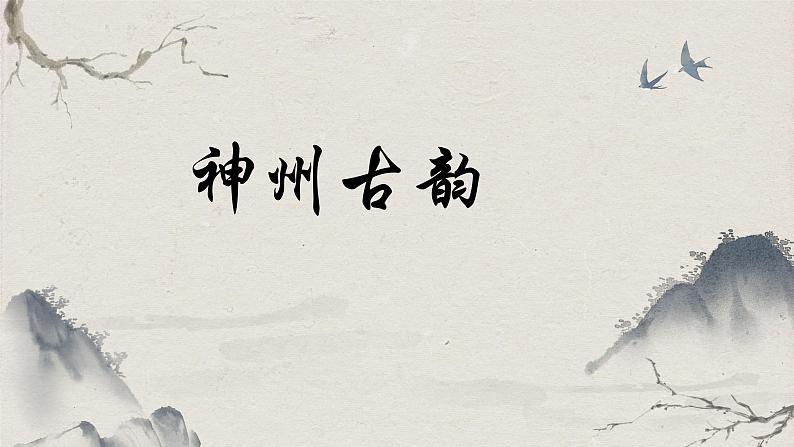 神州古韵